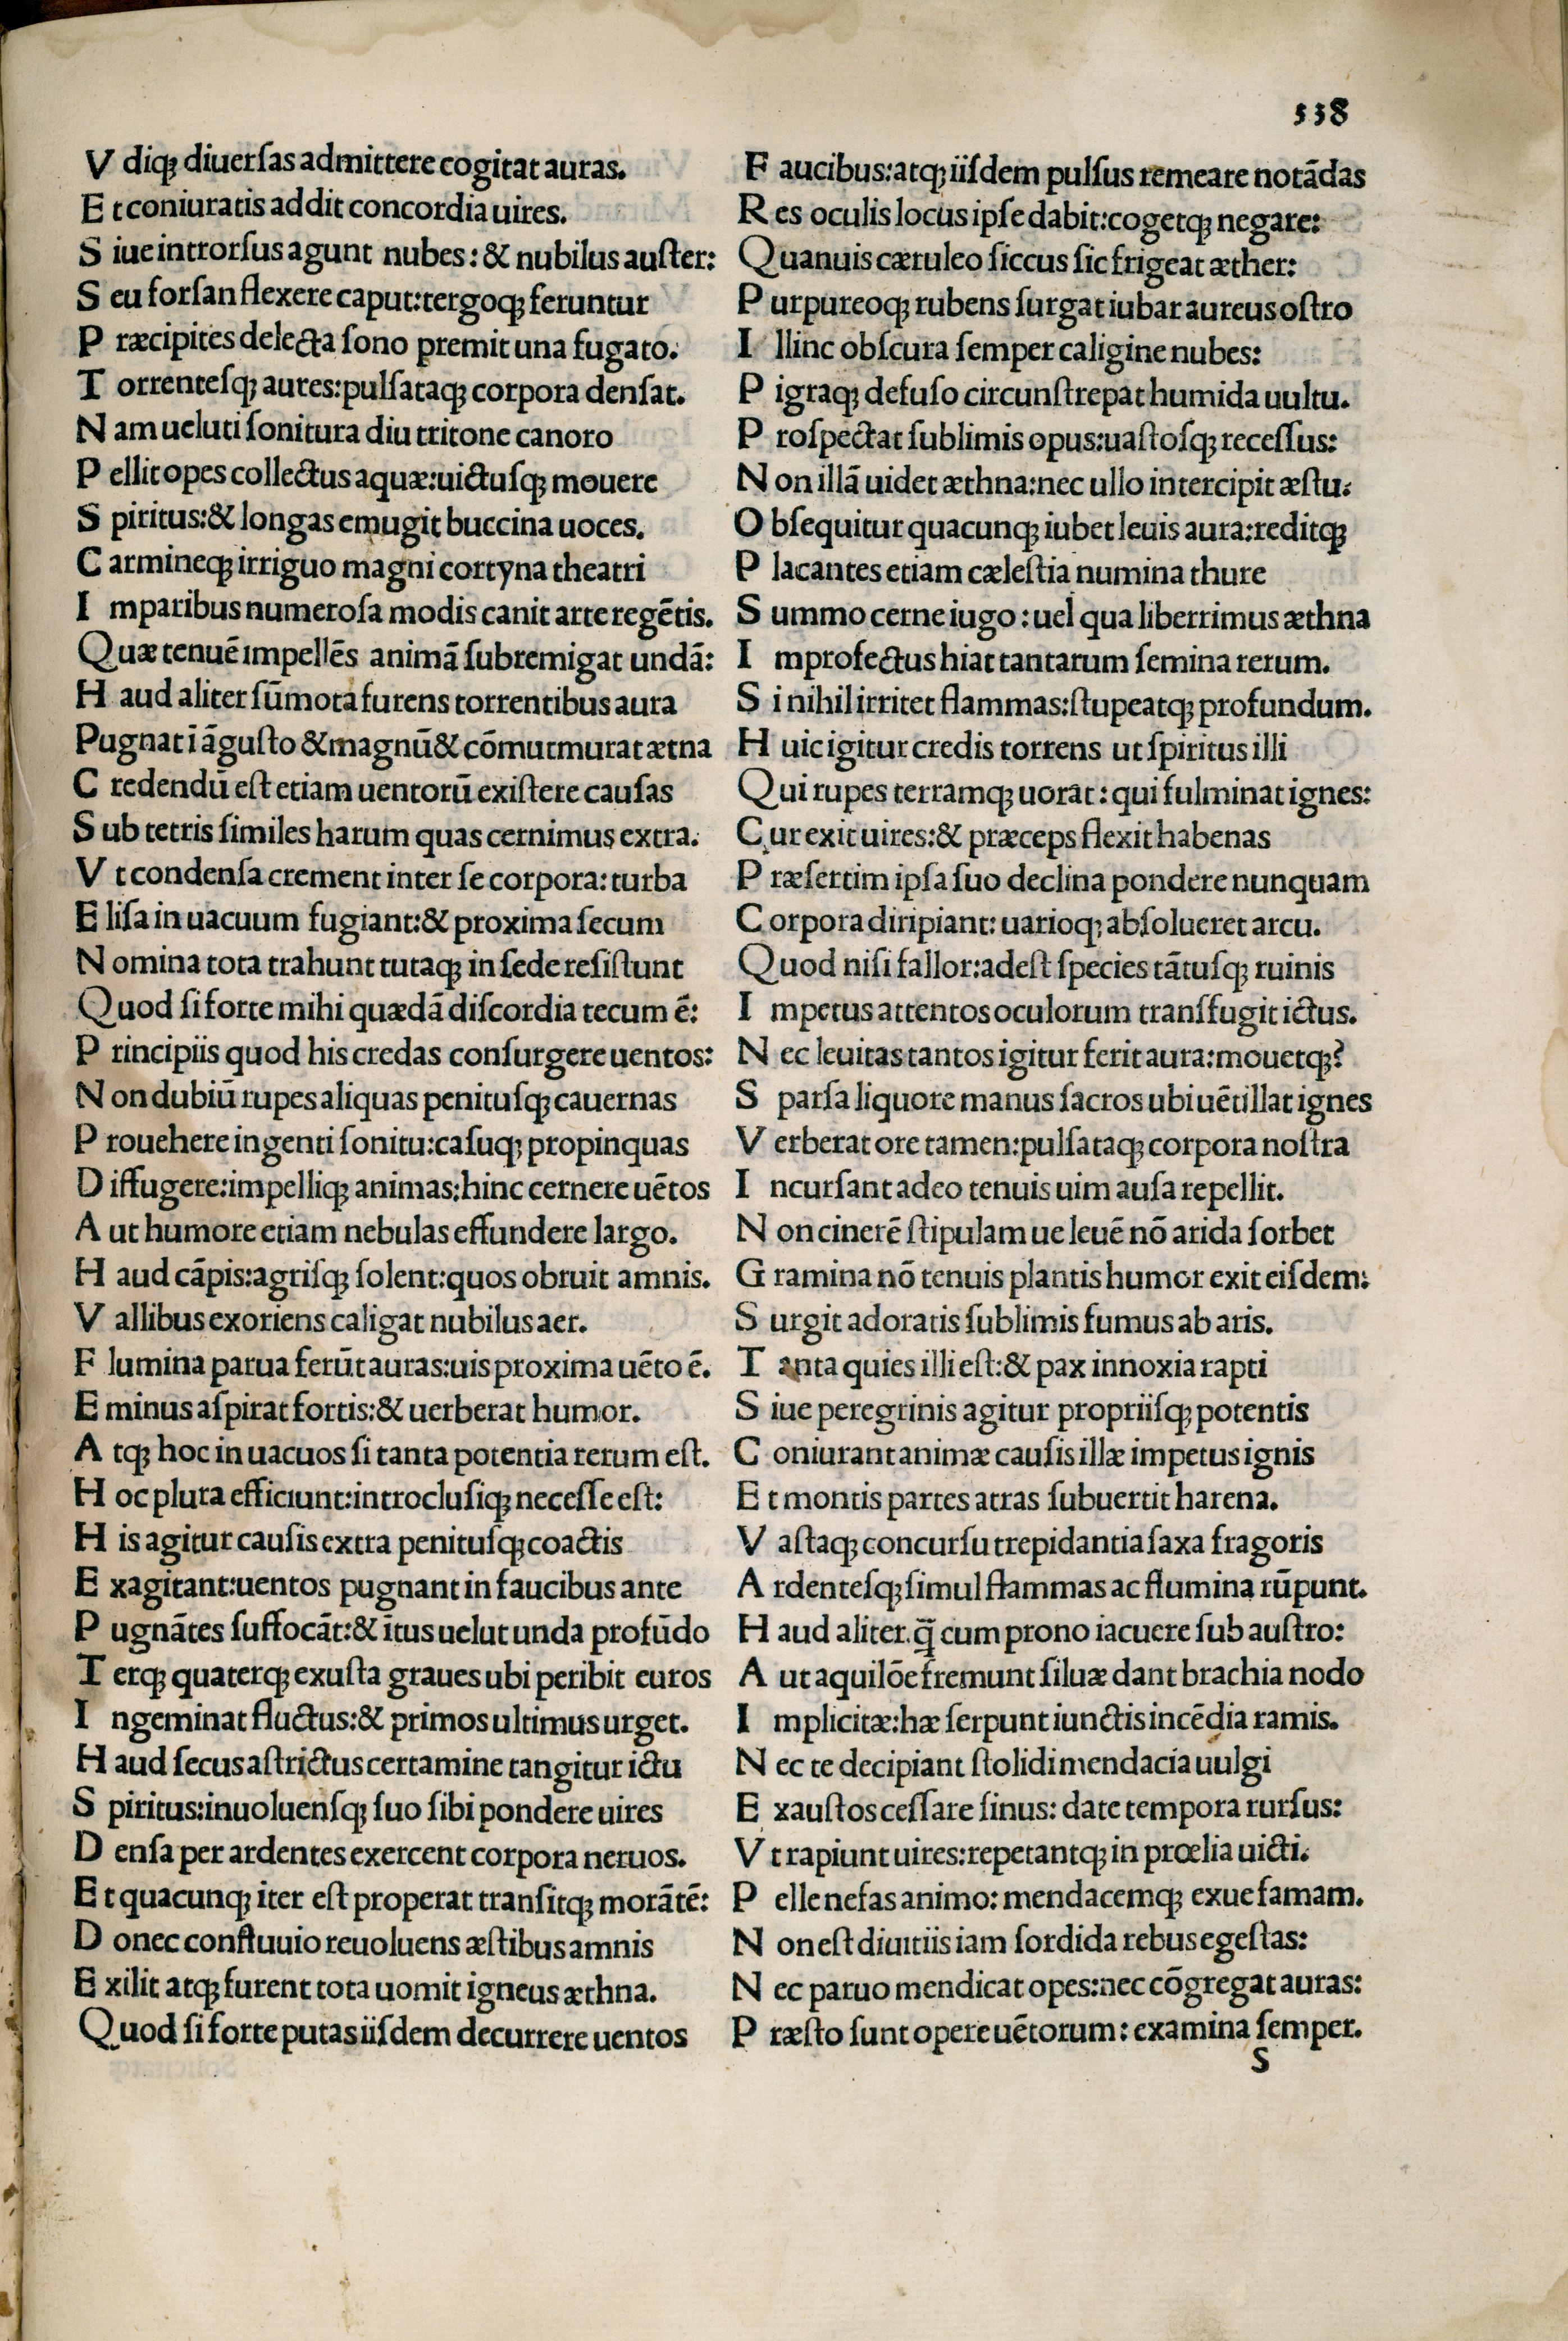 338
V diqꝫ diuerſas admittere cogitat auras.
E t coniuratis addit concordia uires.
S iue introrſus agunt nubes: & nubilus auſter:
S eu forſan flexere caput: tergoqꝫ feruntur
P ræcipites delecta ſono premit una fugato.
T orrenteſqꝫ aures: pulſataqꝫ corpora denſat.
N am ueluti ſonitura diu tritone canoro
P ellit opes collectus aquæ: uictuſqꝫ mouere
S piritus: & longas emugit buccina uoces.
C armineqꝫ irriguo magni cortyna theatri
I mparibus numeroſa modis canit arte regẽtis.
Quæ tenuẽ impellẽs animã ſubremigat undã:
H aud aliter ſũmota furens torrentibus aura
Pugnat ĩ ãguſto & magnũ & cõmutmurat ætna
C redendũ eſt etiam uentorũ exiſtere cauſas
S ub tetris ſimiles harum quas cernimus extra.
V t condenſa crement inter ſe corpora: turba
E liſa in uacuum fugiant: & proxima ſecum
N omina tota trahunt tutaqꝫ in ſede reſiſtunt
Quod ſi forte mihi quædã diſcordia tecum ẽ:
P rincipiis quod his credas conſurgere uentos:
N on dubiũ rupes aliquas penituſqꝫ cauernas
P rouehere ingenti ſonitu: caſuqꝫ propinquas
D iffugere: impelliqꝫ animas: hinc cernere uẽtos
A ut humore etiam nebulas effundere largo.
H aud cãpis: agriſqꝫ ſolent: quos obruit amnis.
V allibus exoriens caligat nubilus aer.
F lumina parua ferũt auras: uis proxima uẽto ẽ.
E minus aſpirat fortis: & uerberat humor.
A tqꝫ hoc in uacuos ſi tanta potentia rerum eſt.
H oc plura efficiunt: introcluſiqꝫ neceſſe eſt:
H is agitur cauſis extra penituſqꝫ coactis
E xagitant: uentos pugnant in faucibus ante
P ugnãtes ſuffocãt: & ĩtus uelut unda profũdo
T erqꝫ quaterqꝫ exuſta graues ubi peribit euros
I ngeminat fluctus: & primos ultimus urget.
H aud ſecus aſtrictus certamine tangitur ictu
S piritus: inuoluenſqꝫ ſuo ſibi pondere uires
D enſa per ardentes exercent corpora neruos.
E t quacunqꝫ iter eſt properat tranſitqꝫ morãtẽ:
D onec confluuio reuoluens æſtibus amnis
E xilit atqꝫ furent tota uomit igneus æthna.
Quod ſi forte putas iiſdem decurrere uentos
F aucibus: atqꝫ iiſdem pulſus remeare notãdas
R es oculis locus ipſe dabit: cogetqꝫ negare:
Quanuis cæruleo ſiccus ſic frigeat æther:
P urpureoqꝫ rubens ſurgat iubar aureus oſtro
I llinc obſcura ſemper caligine nubes:
P igraqꝫ defuſo circunſtrepat humida uultu.
P roſpectat ſublimis opus: uaſtoſqꝫ receſſus:
N on illã uidet æthna: nec ullo intercipit æſtu.
O bſequitur quacunqꝫ iubet leuis aura: reditqꝫ
P lacantes etiam cæleſtia numina thure
S ummo cerne iugo: uel qua liberrimus æthna
I mprofectus hiat tantarum ſemina rerum.
S i nihil irritet flammas: ſtupeatqꝫ profundum.
H uic igitur credis torrens ut ſpiritus illi
Qui rupes terramqꝫ uorat: qui fulminat ignes:
C ur exit uires: & præceps flexit habenas
P ræſertim ipſa ſuo declina pondere nunquam
C orpora diripiant: uarioqꝫ abſolueret arcu.
Quod niſi fallor: adeſt ſpecies tãtuſqꝫ ruinis
I mpetus attentos oculorum tranſfugit ictus.
N ec leuitas tantos igitur ferit aura: mouetqꝫ?
S parſa liquore manus ſacros ubi uẽtillat ignes
V erberat ore tamen: pulſataqꝫ corpora noſtra
I ncurſant adeo tenuis uim auſa repellit.
N on cinerẽ ſtipulam ue leuẽ nõ arida ſorbet
G ramina nõ tenuis plantis humor exit eiſdem:
S urgit adoratis ſublimis fumus ab aris.
T anta quies illi eſt: & pax innoxia rapti
S iue peregrinis agitur propriiſqꝫ potentis
C oniurant animæ cauſis illæ impetus ignis
E t montis partes atras ſubuertit harena.
V aſtaqꝫ concurſu trepidantia ſaxa fragoris
A rdenteſqꝫ ſimul flammas ac flumina rũpunt.
H aud aliter. q̃ cum prono iacuere ſub auſtro:
A ut aquilõe fremunt ſiluæ dant brachia nodo
I mplicitæ: hæ ſerpunt iunctis incẽdia ramis.
N ec te decipiant ſtolidi mendacia uulgi
E xauſtos ceſſare ſinus: date tempora rurſus:
V t rapiunt uires: repetantqꝫ in prœlia uicti.
P elle nefas animo: mendacemqꝫ exue famam.
N on eſt diuitiis iam ſordida rebus egeſtas:
N ec paruo mendicat opes: nec cõgregat auras:
P ræſto ſunt opere uẽtorum: examina ſemper.
S